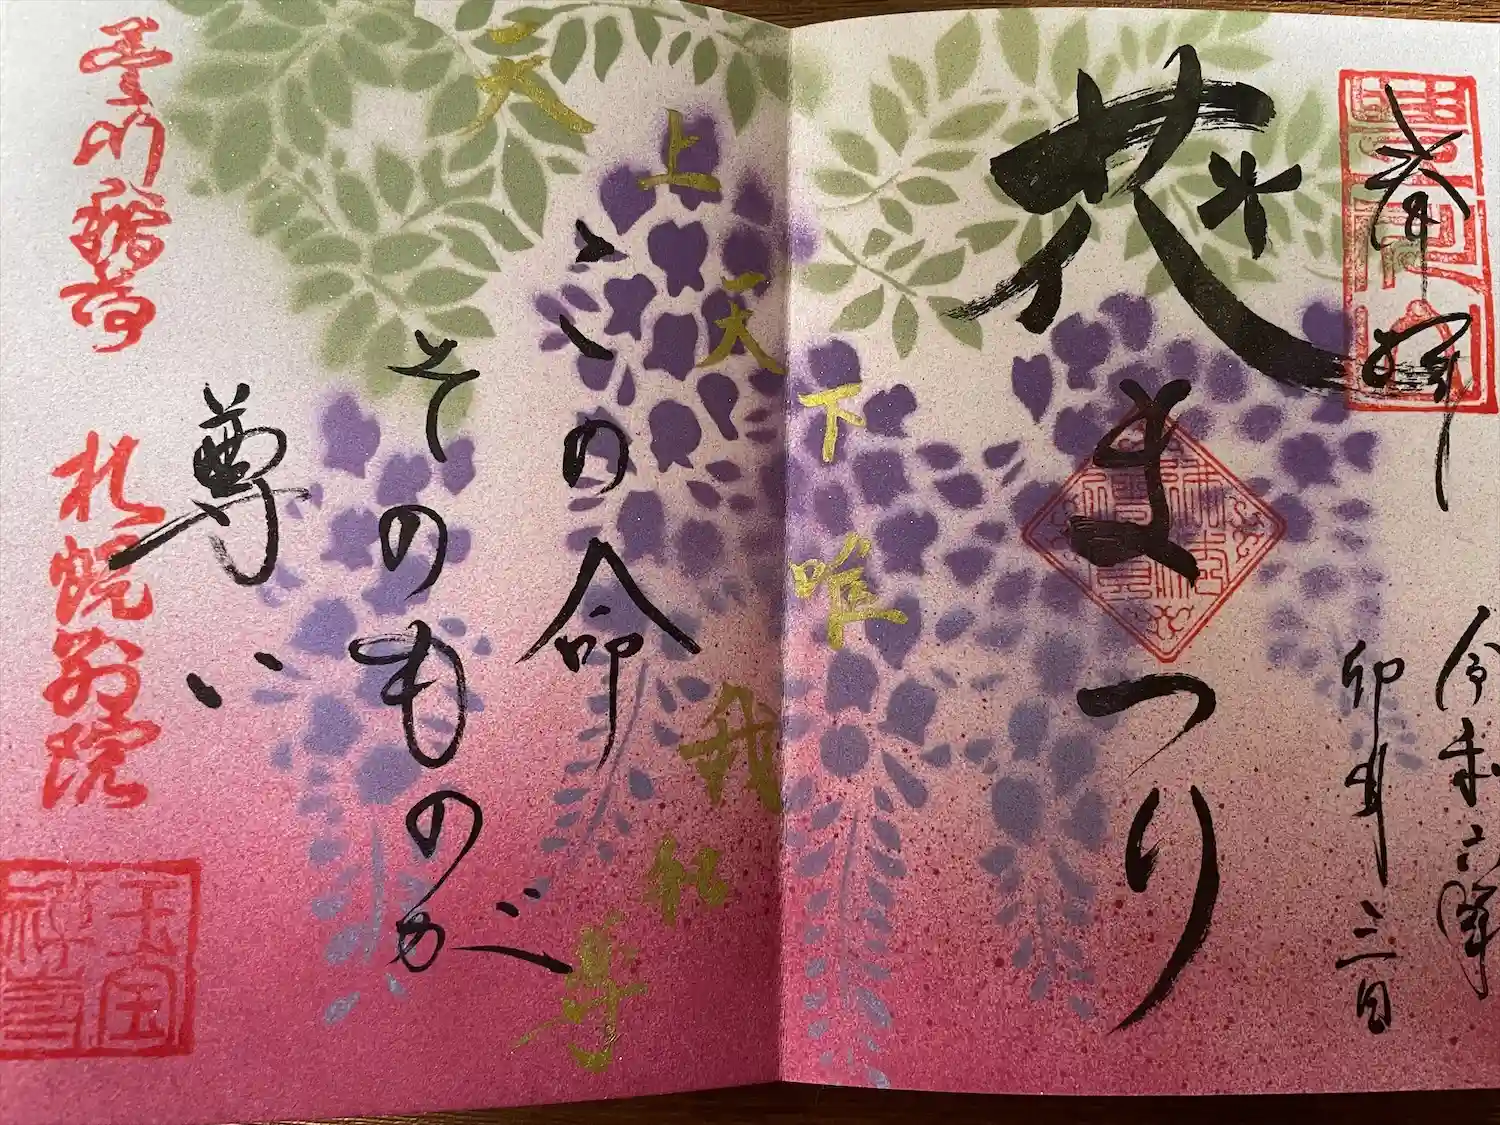 奉拝
令和六年
卯月三日
花まつり
天上天下唯我独尊
この命
そのものが
尊い
豊川稲荷 札幌別院
玉宝禅寺